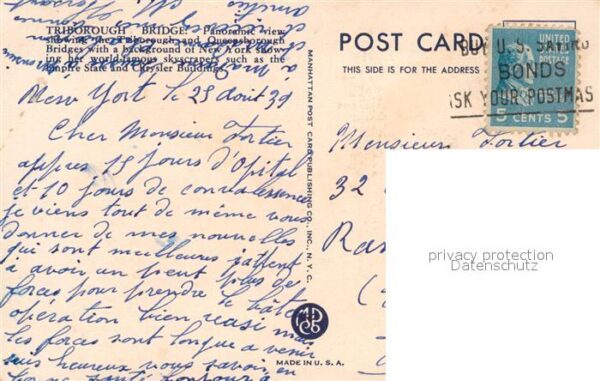 TRIBOROUGH BRIDGE: Panoramic view
showing the Triborough and Queensborough
Bridges with a background of New York show-
ing her world-famous skyscrapers such as the
Empire State and Chrysler Buildings.
New York le 25 août 39
Cher Monsieur Fortier
appres 15 jours d'Opital
et 10 jours de convalessence
je viens tout de même vous
donner de mes nouvelles
qui sont meilleures j'attent
à avoir un peut plus de
forces pour prendre le bâteau
opération bien reussi mais
les forces sont longue a venir
suis heureux vous savoir en
bonne santé bonjour a
MANHATTAN POST CARD PUBLISHING CO., INC., N. Y. C.
MADE IN U. S. A.
POST CARD
THIS SIDE IS FOR THE ADDRESS
BUY U. S. SAVING
BONDS
ASK YOUR POSTMAS
5 CENTS 5
Monsieur Fortier
32
privacy protection
Datenschutz